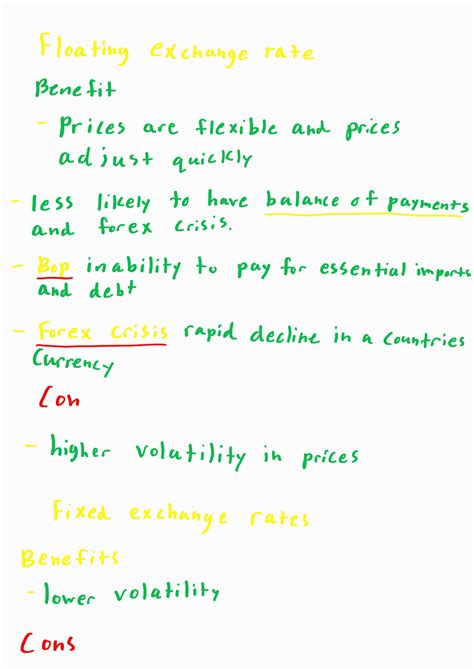 Floating exchange rate
Benefit
- Prices are flexible and prices
adjust quickly
- less likely to have balance of payments
and forex crisis.
- Bop inability to pay for essential imports
and debt
- Forex crisis rapid decline in a countries
currency
Con
- higher volatility in prices
Fixed exchange rates
Benefits
- lower volatility
Cons